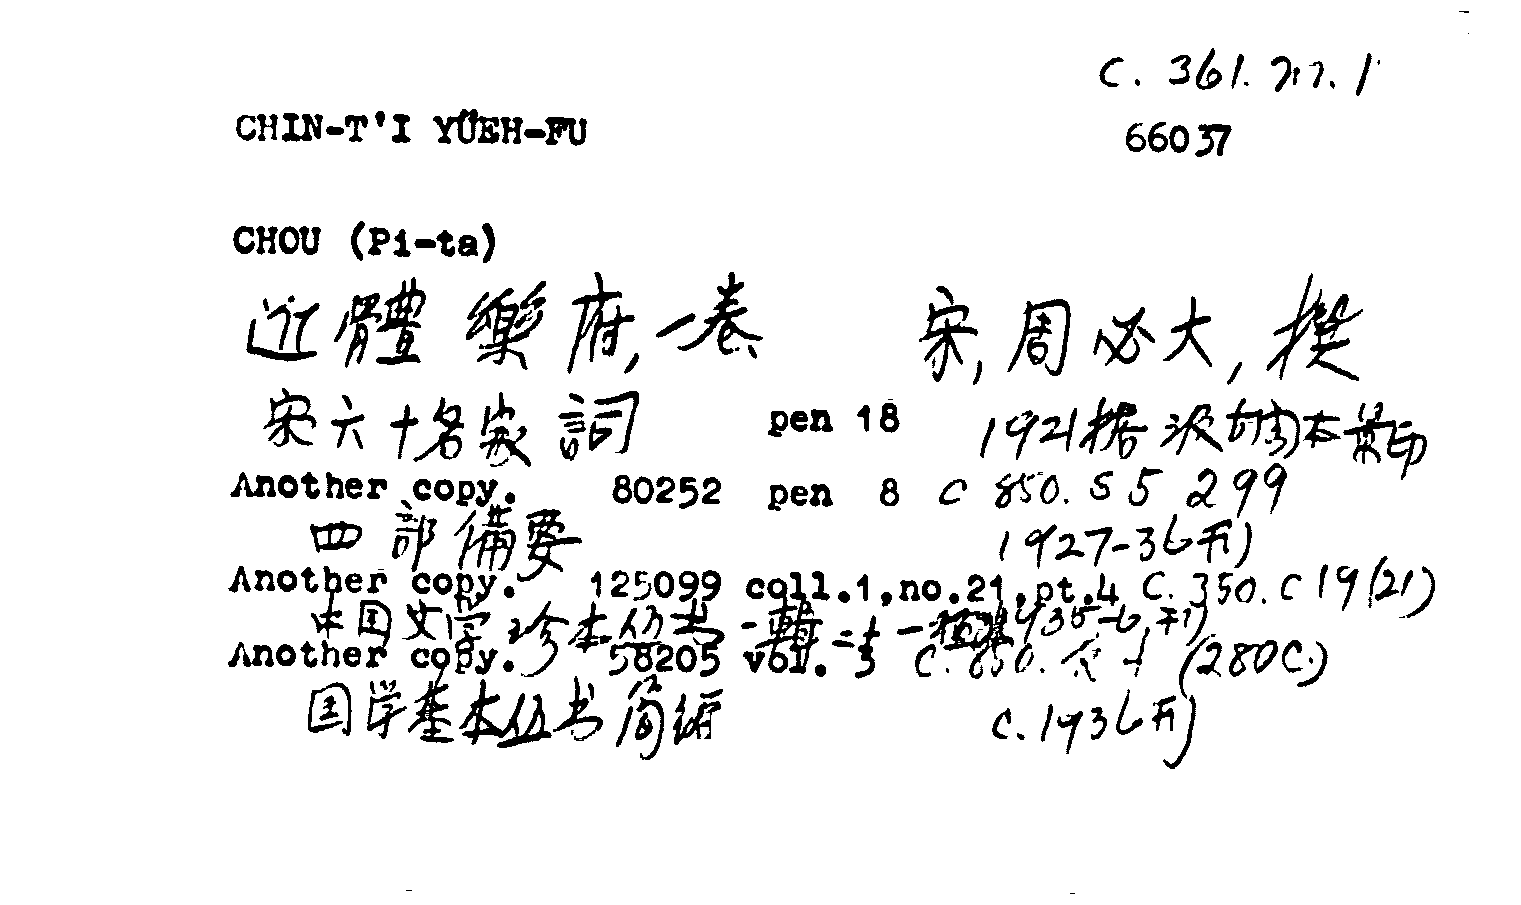 C. 361. 717. 1
CHIN-T'I YÜEH-FU
66037
CHOU (Pi-ta)
近體樂府,一卷 宋,周必大,撰
宋六十名家詞 pen 18 1921据汲古阁本景印
Another copy. 80252 pen 8 C 850. S5 299
四部備要 1927-36刊
Another copy. 125099 coll.1,no.21,pt.4 C. 350. C19 (21)
中国文学珍本丛书一輯二十一种 1935-6刊
Another copy. 58205 vol. 3 C. 850. (280C.)
国学基本丛书简编 C. 1936刊